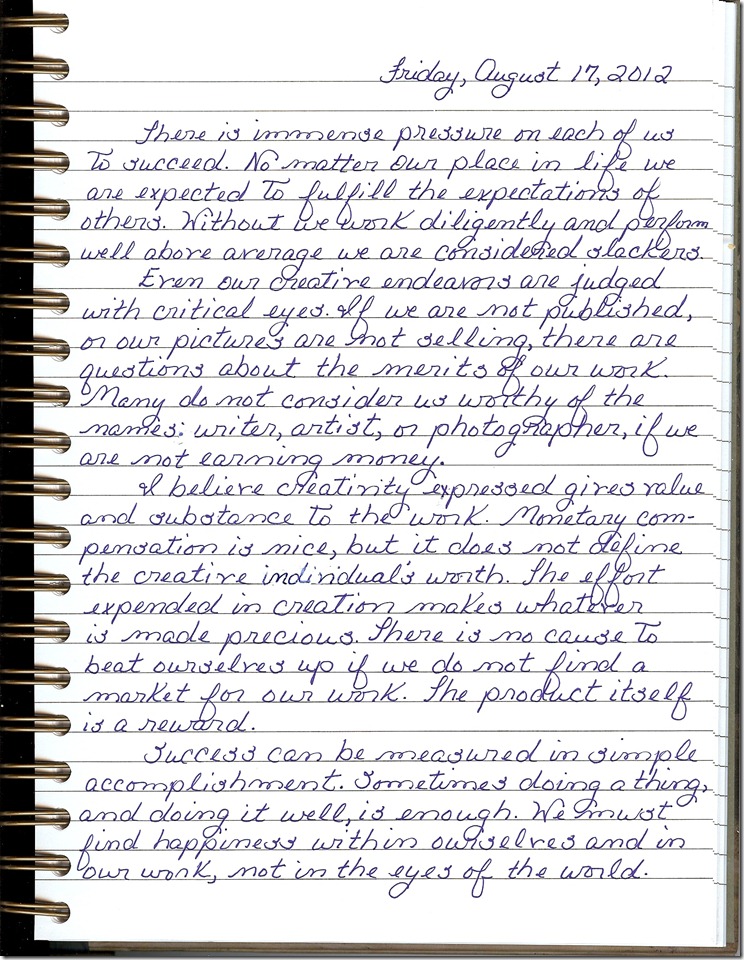 Friday, August 17, 2012
There is immense pressure on each of us
to succeed. No matter our place in life we
are expected to fulfill the expectations of
others. Without we work diligently and perform
well above average we are considered slackers.
Even our creative endeavors are judged
with critical eyes. If we are not published,
or our pictures are not selling, there are
questions about the merits of our work.
Many do not consider us worthy of the
names: writer, artist, or photographer, if we
are not earning money.
I believe creativity expressed gives value
and substance to the work. Monetary com-
pensation is nice, but it does not define
the creative individual's worth. The effort
expended in creation makes whatever
is made precious. There is no cause to
beat ourselves up if we do not find a
market for our work. The product itself
is a reward.
Success can be measured in simple
accomplishment. Sometimes doing a thing,
and doing it well, is enough. We must
find happiness within ourselves and in
our work, not in the eyes of the world.